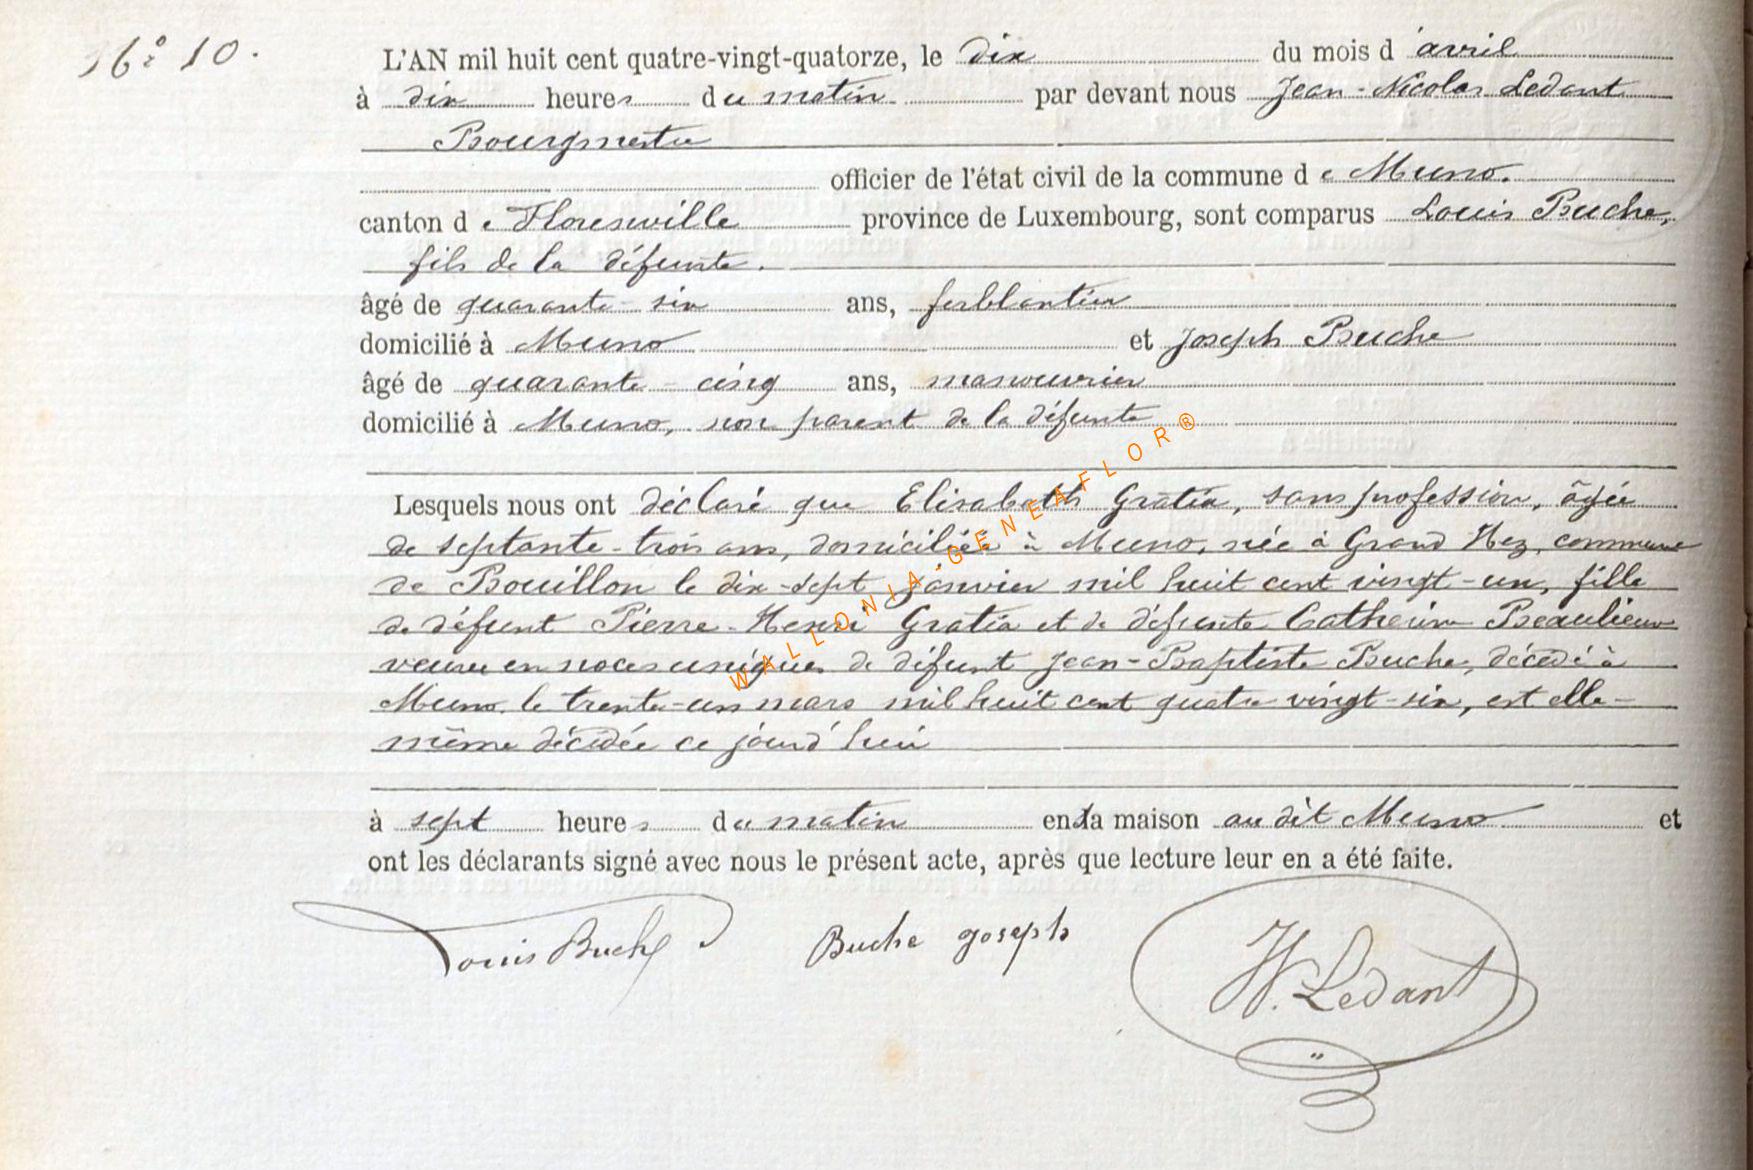 N° 10.
L'AN mil huit cent quatre-vingt-quatorze, le dix du mois d'avril
à dix heures du matin par devant nous Jean-Nicolas Ledant
Bourgmestre
officier de l'état civil de la commune de Muno.
canton de Florenville province de Luxembourg, sont comparus Louis Buche,
fils de la défunte.
âgé de quarante-six ans, ferblantier
domicilié à Muno et Joseph Buche
âgé de quarante-cinq ans, manouvrier
domicilié à Muno, non parent de la défunte
Lesquels nous ont déclaré que Elisabeth Gratia, sans profession, âgée
de septante-trois ans, domiciliée à Muno, née à Grand Hez, commune
de Bouillon le dix-sept janvier mil huit cent vingt-un, fille
de défunt Pierre-Henri Gratia et de défunte Catherine Beaulieu
veuve en noces uniques de défunt Jean-Baptiste Buche, décédé à
Muno, le trente-un mars mil huit cent quatre vingt-six, est elle-
même décédée ce jourd'hui
à sept heures du matin en sa maison au dit Muno et
ont les déclarants signé avec nous le présent acte, après que lecture leur en a été faite.
Louis Buche Buche Joseph N. Ledant
WALLONIA-GENEAFLOR®